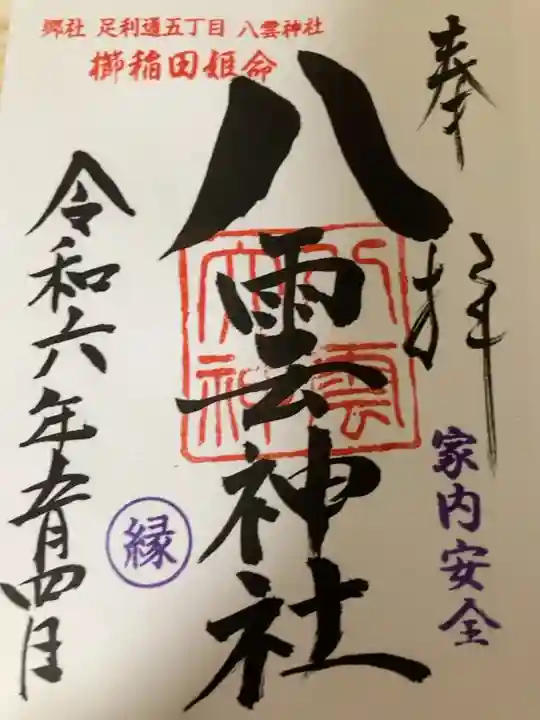 郷社 足利通五丁目 八雲神社
櫛稲田姫命
奉拝
家内安全
八雲神社
八雲
大神
縁
令和六年五月四日